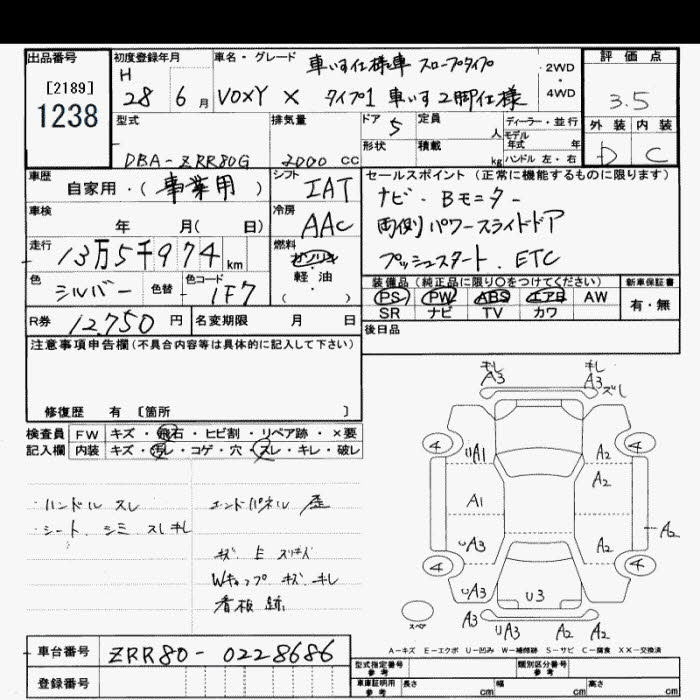 出品番号
[2189]
1238
初度登録年月
H
28 6 月
車名・グレード
車いす仕様車 スロープタイプ
VOXY X タイプ1 車いす2脚仕様
2WD
・
4WD
評価点
3.5
外装 内装
D C
型式
DBA-ZRR80G
排気量
2000 CC
ドア
5
形状
定員
人
積載
kg
ディーラー・並行
モデル
年式 年
ハンドル 左・右
車歴
自家用・(事業用)
シフト
IAT
車検
年 月( 日)
冷房
AAC
走行
13万5千974 km
燃料
ガソリン
・
軽・油
( )
色
シルバー
色替
色コード
1F7
R券 12,750 円
名変期限 月 日
セールスポイント(正常に機能するものに限ります)
ナビ・Bモニター
両側パワースライドドア
プッシュスタート. ETC
装備品(純正品に限り○をつけてください)
PS PW ABS エアB AW
SR ナビ TV カワ
新車保証書
有・無
後日品
注意事項申告欄(不具合内容等は具体的に記入して下さい)
修復歴 有 〔箇所 〕
検査員 FW キズ・飛石・ヒビ割・リペア跡・×要
記入欄 内装 キズ・汚レ・コゲ・穴・スレ・キレ・破レ
・ハンドル スレ
・シート、シミ スレ キレ
エンドパネル 歪
Wキャップ キズ キレ
看板跡
キレ
A3
キレ
A3 ズレ
4 UA1 A2 4
A2
A1
A2
UA3 A2
4 4
UA3 U3 A2
スペア
A3 UA3 A2 A3
A-キズ E-エクボ U-凹み W-補修跡 S-サビ C-腐食 XX-交換済
車台番号 ZRR80-0228686
登録番号
型式指定番号
参考
類別区分番号
参考
車庫証明用
参考
長さ cm 幅 cm 高さ cm